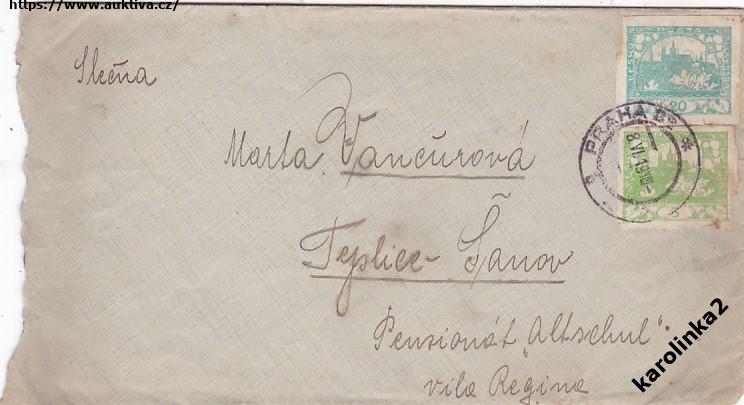 https://www.auktiva.cz/
Slečna
Marta Vančurová
Teplice-Šanov
Pensionát „Altschul“
vila Regina
20
PRAHA
8 VI 19
5
karolinka2